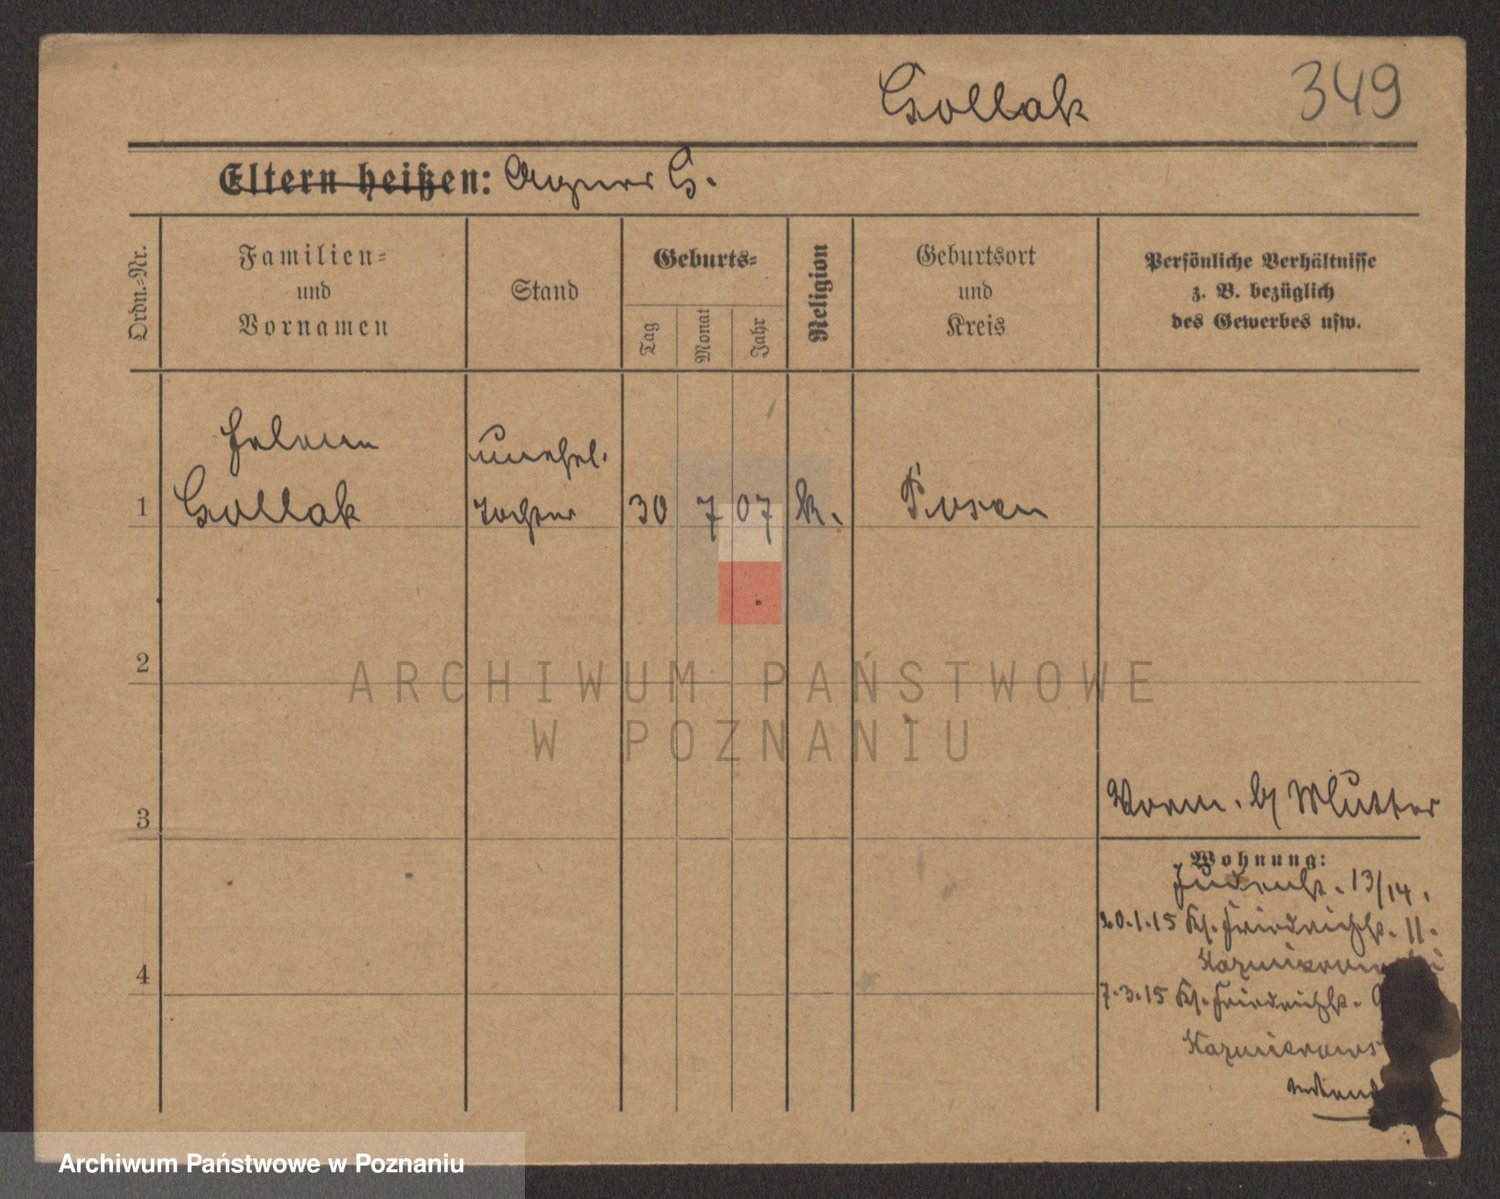 Gollak 349
Eltern heißen: Agnes G.
Ordn.-Nr.
Familien-
und
Vornamen
Stand
Geburts-
Tag
Monat
Jahr
Religion
Geburtsort
und
Kreis
Persönliche Verhältnisse
z. B. bezüglich
des Gewerbes usw.
Helene unehel.
1 Gollak Tochter 30 7 07 k. Posen
2
ARCHIWUM PAŃSTWOWE
W POZNANIU
Vorm. b/ Mutter
3
Wohnung:
Judenstr. 13/14.
20.1.15 Kl. Friedrichstr. 11.
4
7.3.15 Kl. Friedrichstr.
Archiwum Państwowe w Poznaniu